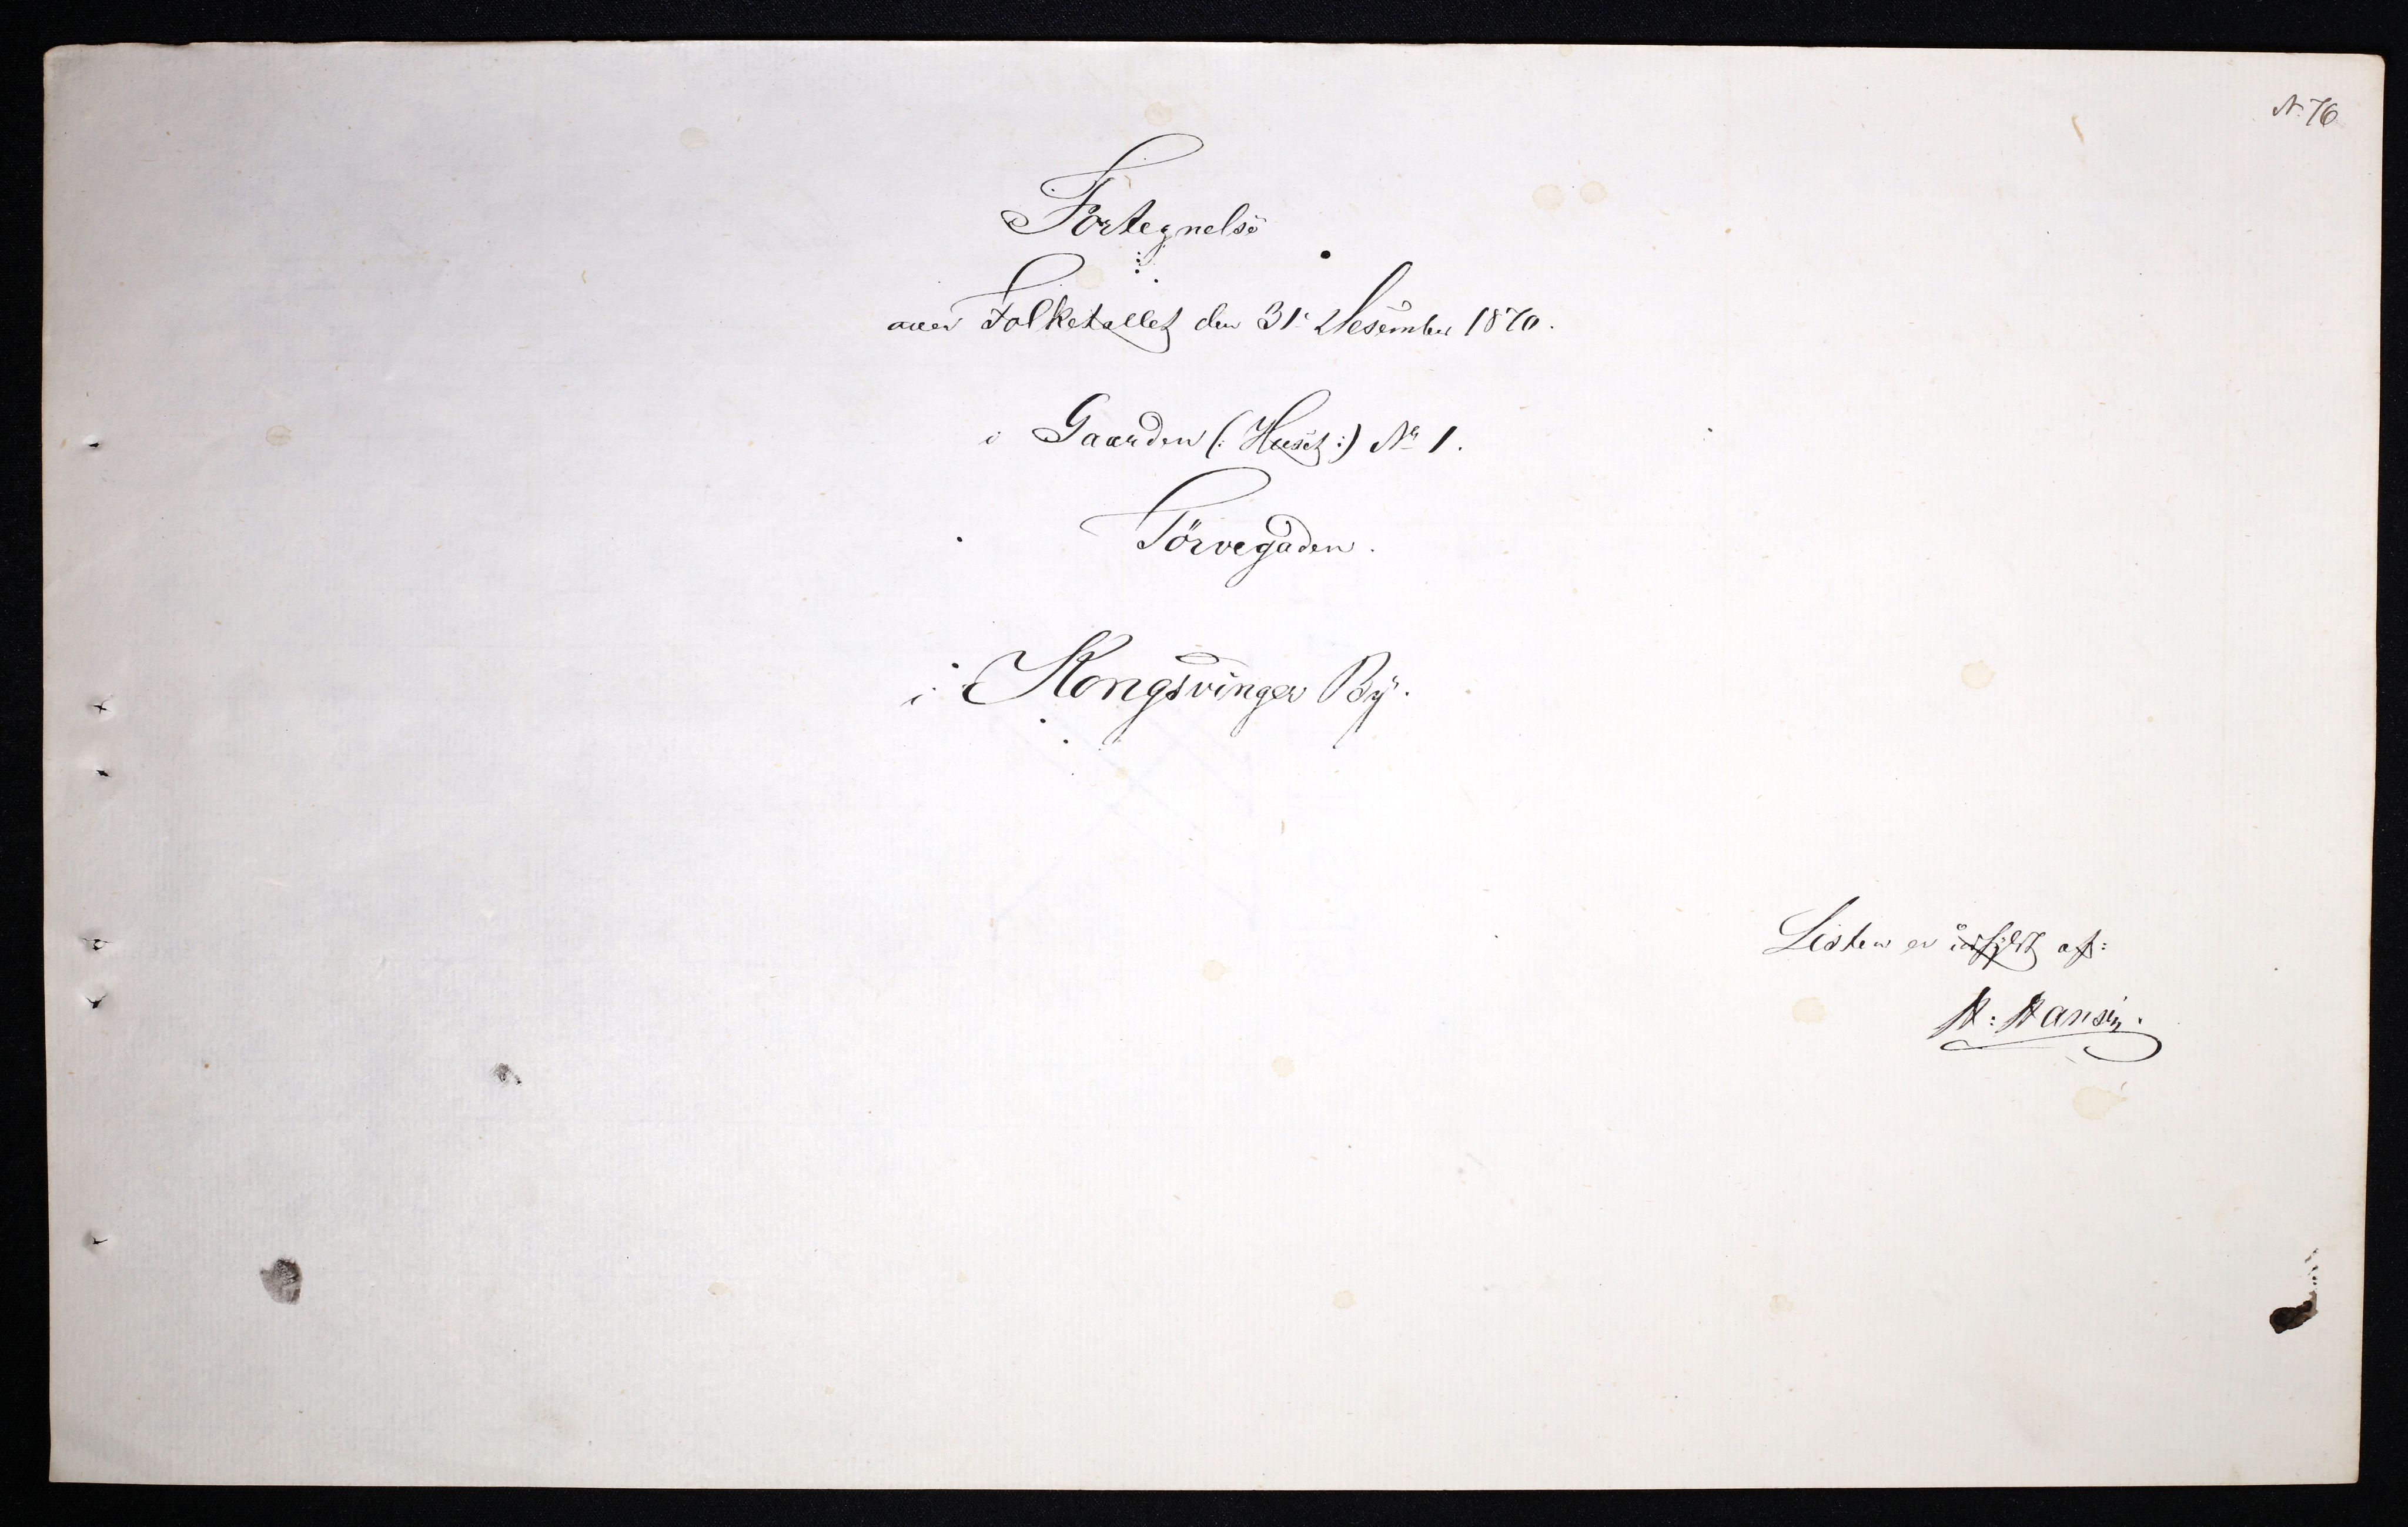 N. 76
Fortegnelse
over Folketallet den 31. Desember 1870.
i Gaarden (: Huset :) No 1.
Törvegaden.
i Kongsvinger By.
Listen er udfyldt af:
H: Hansen.